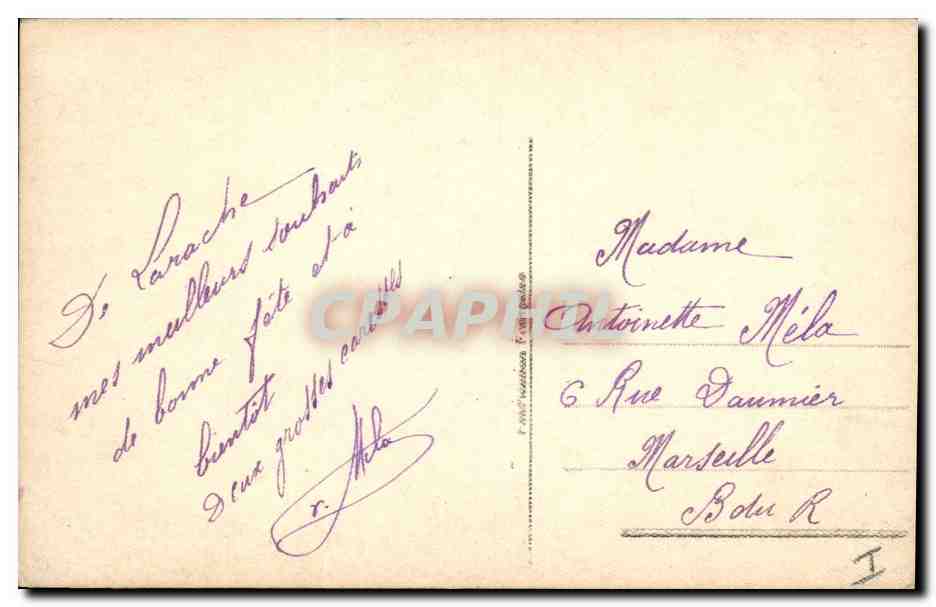 De Larache
mes meilleurs souhaits
de bonne fête et à
bientôt
Deux grosses caresses
r. Mela
Madame
Antoinette Méla
6 Rue Daumier
Marseille
B du R
I
CPAPHIL